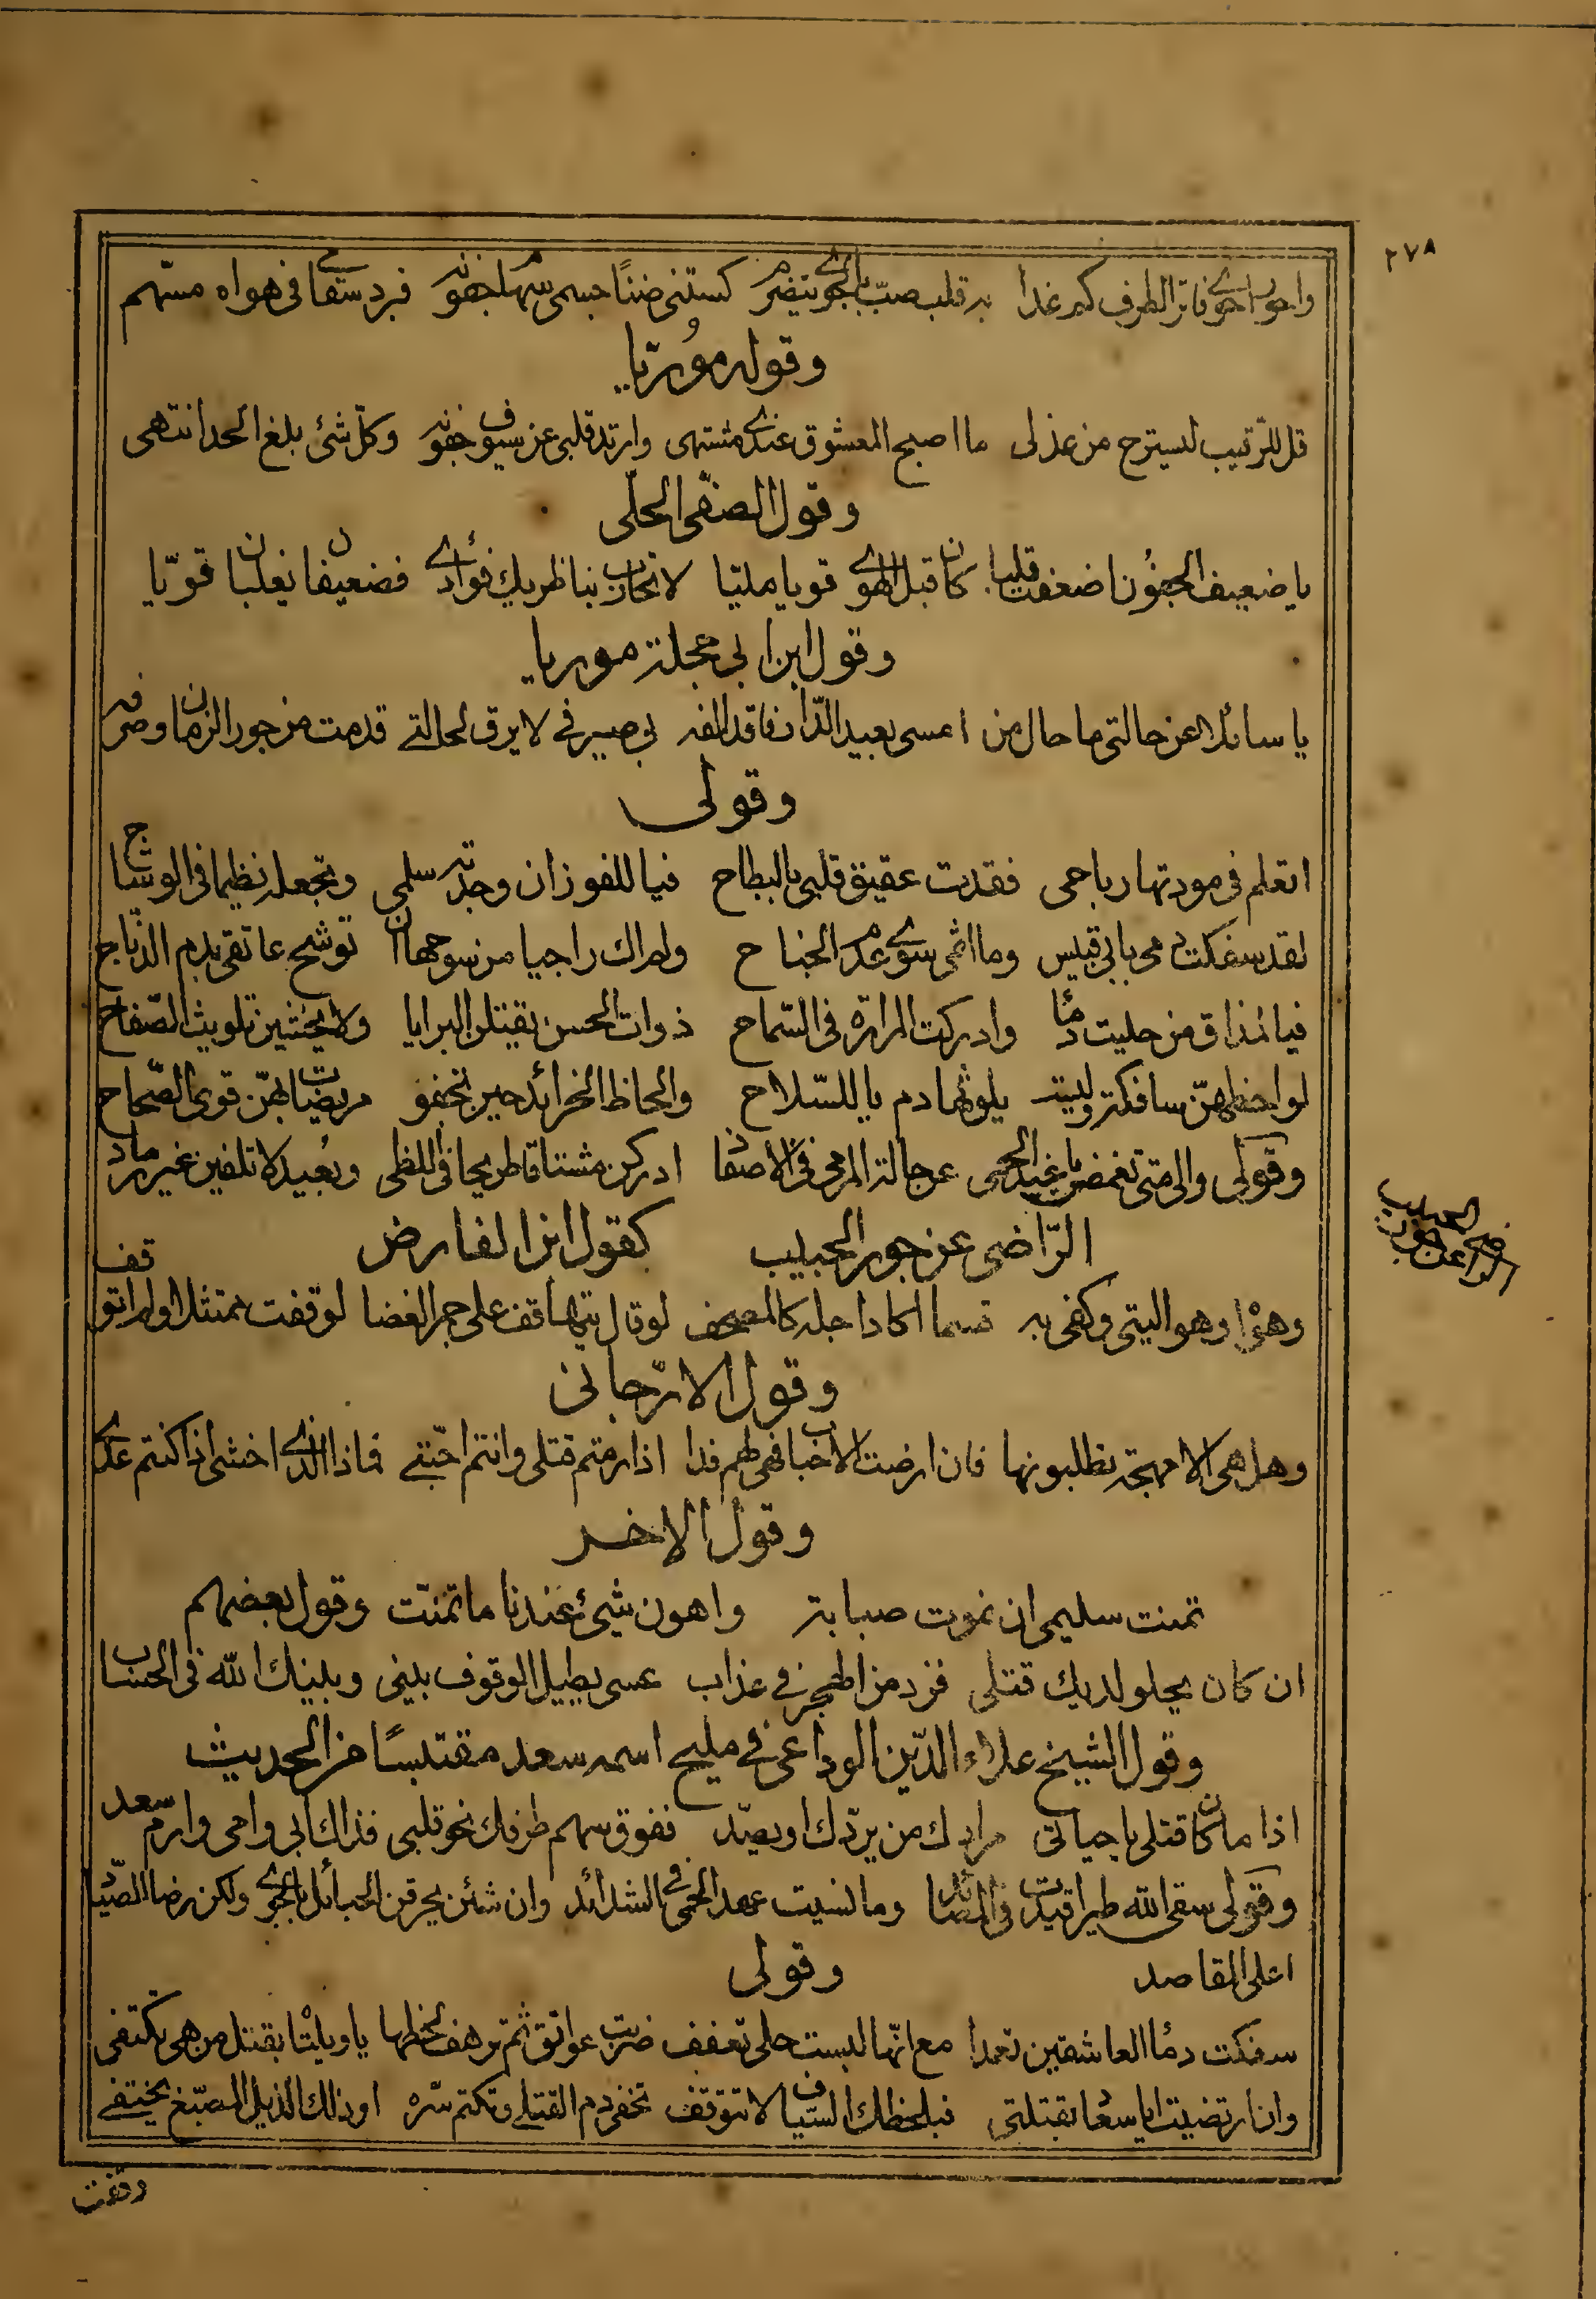 ٢٧٨
واحور احوى فاتر الطرف كم غدا به قلب صب بالجوى يتضرم كستنى ضنًا جسمى سهام جفونه فبرد سقامى فى هواه مسهم
وقوله مُورّيا
قل للرّقيب ليسترح من عذلى ما اصبح المعشوق عندى مشتهى وارتد قلبى عن سيوف جفونه وكلّ شئ بلغ الحد انتهى
وقول الصفى الحلّى
يا ضعيف الجفون اضعفت قلبا كان قبل الهوى قويا مليّا لا تحارب بناظريك فؤادى فضعيفان يغلبان قويّا
وقول ابن ابى حجلة موريا
يا سائلا عن حالتى ما حال من امسى بعيد الدّار فاقد الفه بى صيرفى لا يرق لحالتى قد مت من جور الزمان وصرفه
وقولى
اتعلم فى مودتها رباحى فقدت عقيق قلبى بالبطاح فيا للفوز ان وجدته سلمى وتجعله نظيما فى الوشاح
لقد سفكت دمى بابى قبيس وما اثمى سوى عدم الجناح ولم اك راجيا من سوحها ان توشح عاتقى بدم الذباح
فيا لمذاق من حليت دمًا وادركت المرارة فى السّماح ذوات الحسن يقتلن البرايا ولا يخشين تلويث الصّفاح
لواحظهنّ سافكة وليست يلوثها دم يا للسّلاح والحاظ الخرائد حين تجفو مريضات بهنّ قوى الصّحاح
وقولى والى متى تغمض يا غيد الحمى عن حالة المرمى فى الاصفاد ادركن مشتاقا طريحا فى اللظى وبُعيد لا تلفين غير رماد
الرّاضى عن جور الحبيب كقول ابن الفارض
الراضى عن جور الحبيب
وهواه وهو اليتى وكفى به قسما اكاد اجله كالمصحف لو قال تيها قف على جمر الغضا لوقفت ممتثلا ولم اتوقف
وقول الارّجانى
وهل هى الا مهجة يطلبونها فان ارضت الاحباب فهى لهم فدا اذا رمتم قتلى وانتم احبّتى فماذا الذى اخشى اذا كنتم عدى
وقول الاخر
تمنت سليمى ان نموت صبابة واهون شيئ عندنا ما تمنّت وقول بعضهم
ان كان يحلو لديك قتلى فزد من الهجر فى عذاب عسى يطيل الوقوف بينى وبينك الله فى الحساب
وقول الشيخ علاء الدّين الوداعى فى مليح اسمه سعد مقتبسًا من الحديث
اذا ما كان قتلى يا حياتى مرادك من يردّك او يصدّ ففوق سهم طرفك نحو قلبى فداك ابى وامى وارم سعد
وقولى سقى الله طيرا قيدت فى المصائد وما نسيت عهد الحمى فى الشدائد وان شئن يحرقن الحبائل بالجوى ولكن رضا الصّياد
اعلى المقاصد وقولى
سفكت دمًا العاشقين تعمدا مع انّها لبست حلى تعفف ضربت عواتق ثم ترهف لحظها يا ويلتا بقتل من هى تكتفى
وان ارتضيت ايا سعاد بقتلتى فبلحظك السّياف لا تتوقف تخفى دم القتلى وتكتم سّره او ذلك الذيل المصبّغ يختفى
وقفت